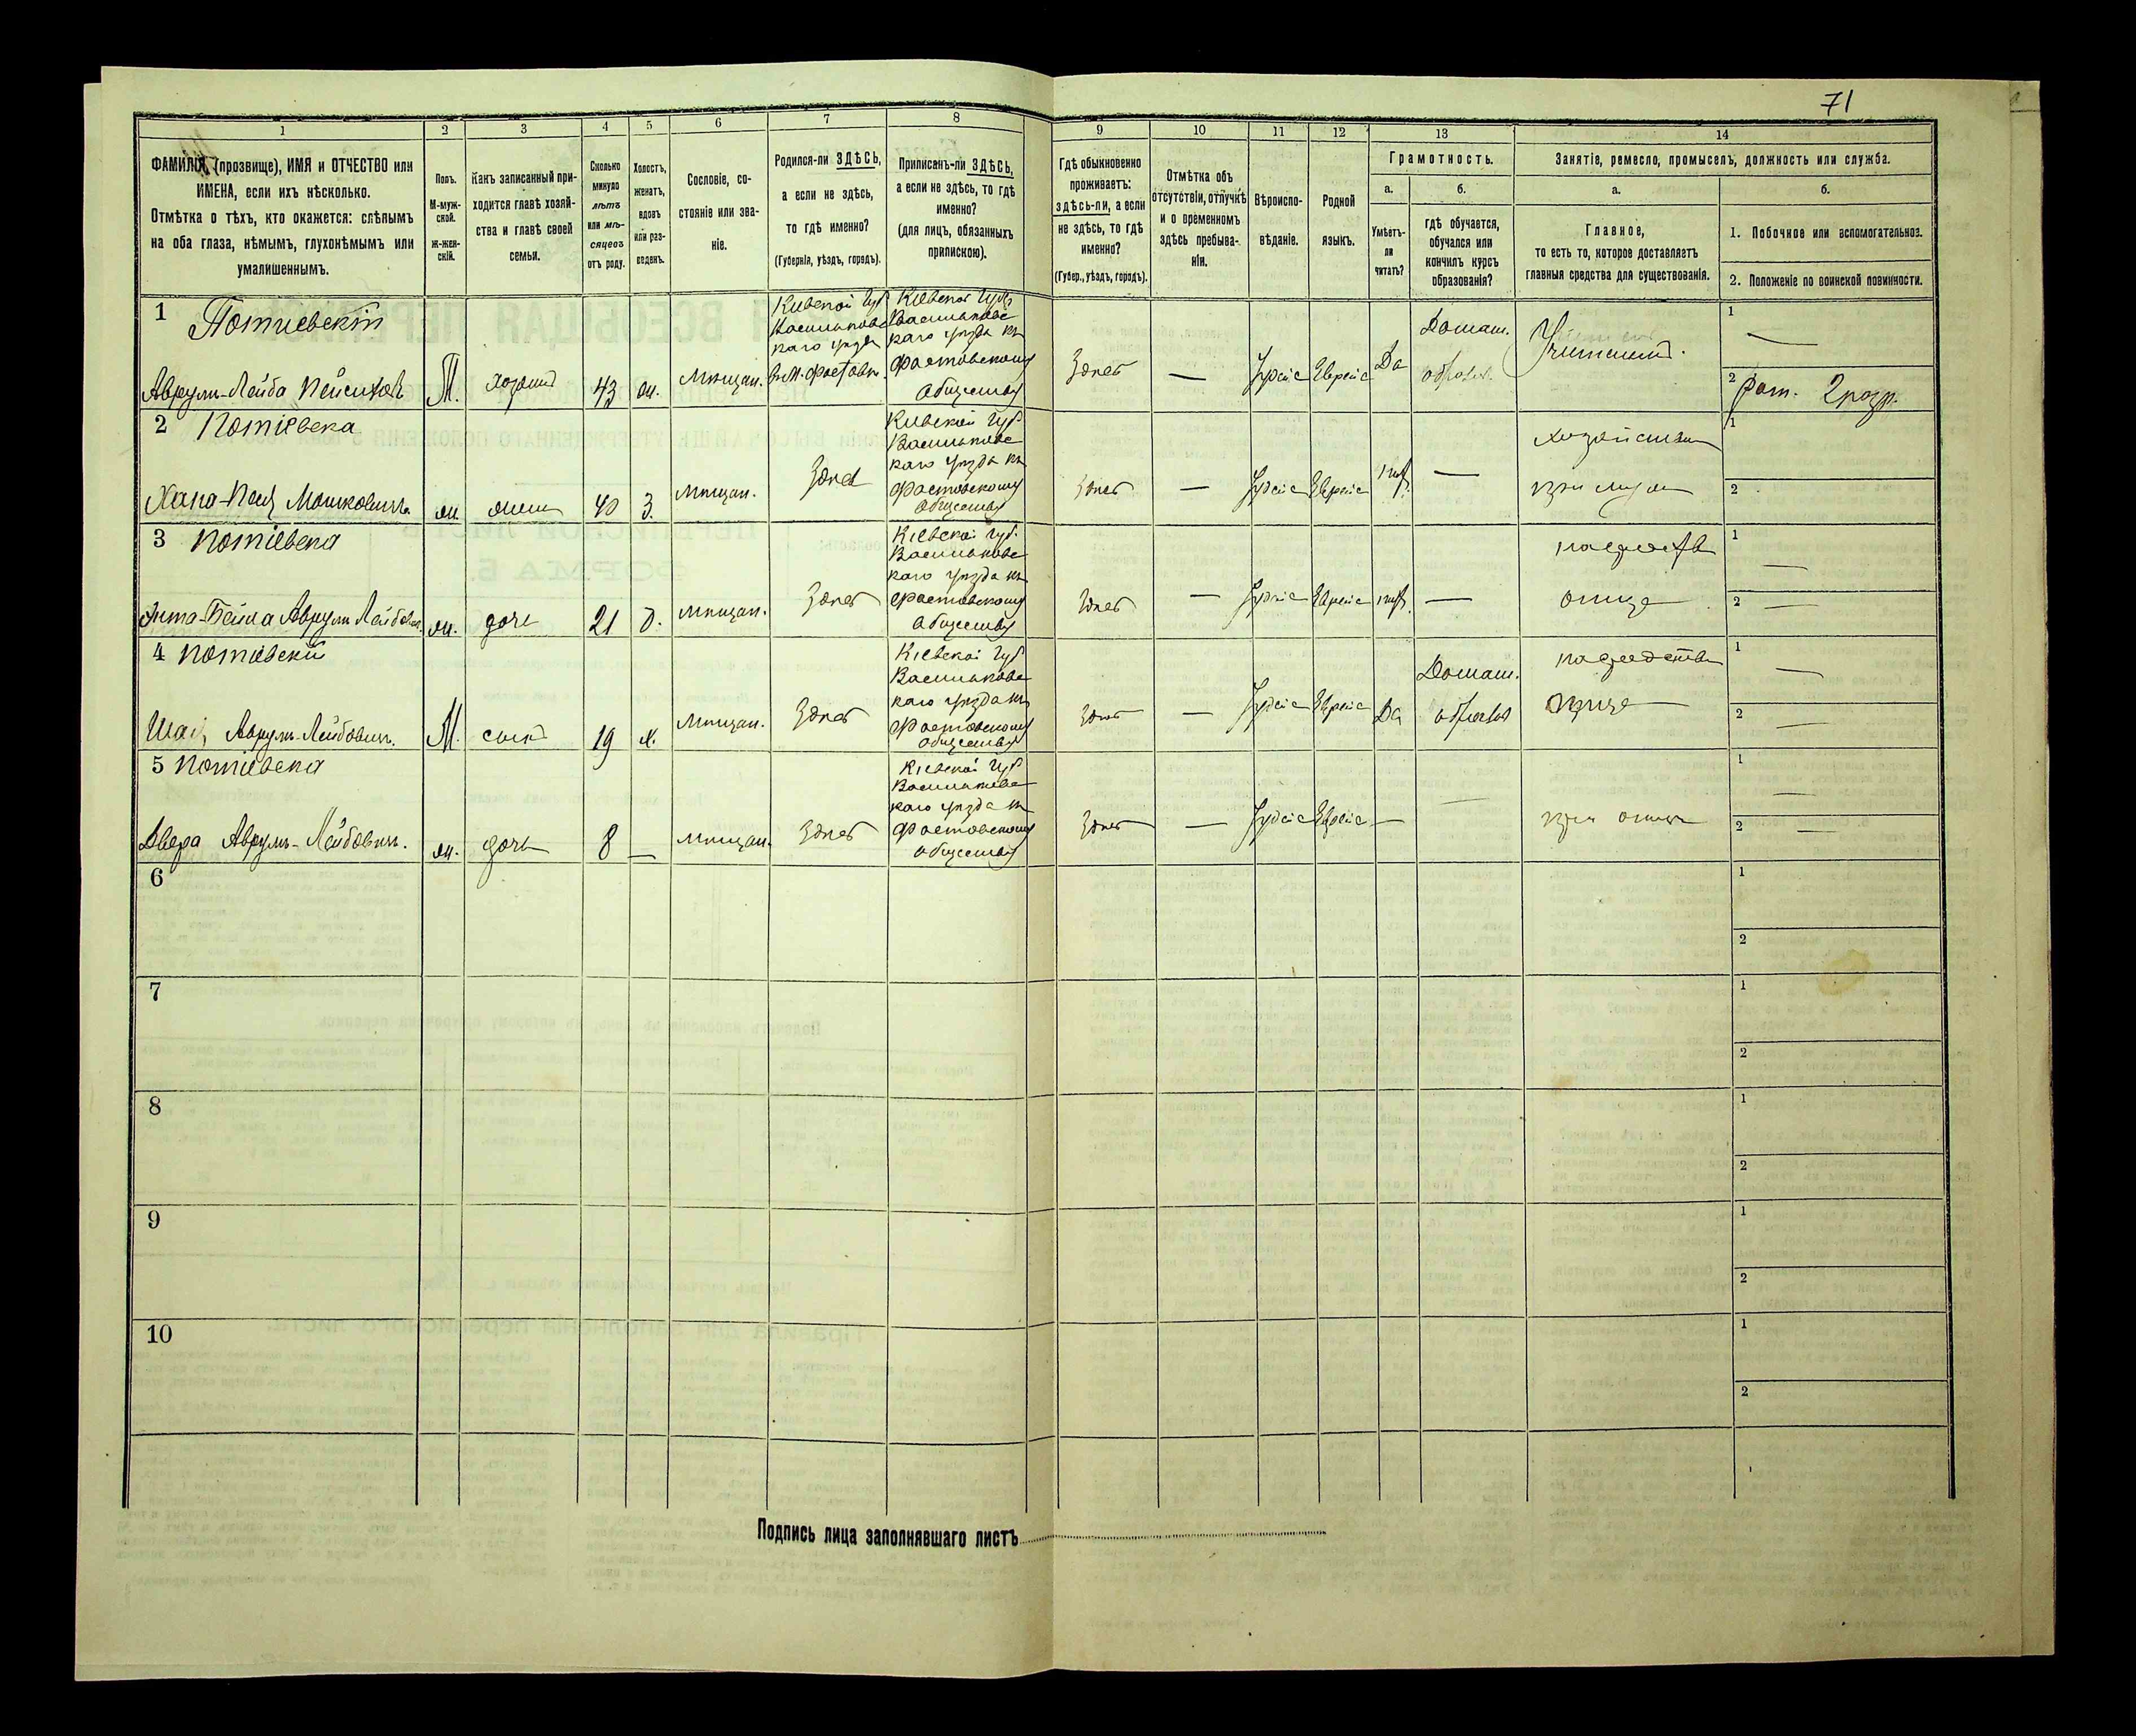 71
1
2
3
4
5
6
7
8
9
10
11
12
13
14
ФАМИЛІЯ, (прозвище), ИМЯ и ОТЧЕСТВО или
ИМЕНА, если ихъ нѣсколько.
Отмѣтка о тѣхъ, кто окажется: слѣпымъ
на оба глаза, нѣмымъ, глухонѣмымъ или
умалишеннымъ.
Полъ.
М-муж-
ской.
ж-жен-
скій.
Какъ записанный при-
ходится главѣ хозяй-
ства и главѣ своей
семьи.
Сколько
минуло
лѣтъ
или мѣ-
сяцевъ
отъ роду.
Холостъ,
женатъ,
вдовъ
или раз-
веденъ.
Сословіе, со-
стояніе или зва-
ніе.
Родился-ли ЗДѢСЬ,
а если не здѣсь,
то гдѣ именно?
(Губернія, уѣздъ, городъ).
Приписанъ-ли ЗДѢСЬ,
а если не здѣсь, то гдѣ
именно?
(для лицъ, обязанныхъ
припискою).
Гдѣ обыкновенно
проживаетъ:
здѣсь-ли, а если
не здѣсь, то гдѣ
именно?
(Губер., уѣздъ, городъ).
Отмѣтка объ
отсутствіи, отлучкѣ
и о временномъ
здѣсь пребыва-
ніи.
Вѣроиспо-
вѣданіе.
Родной
языкъ.
Грамотность.
а.
б.
Умѣетъ-
ли
читать?
гдѣ обучается,
обучался или
кончилъ курсъ
образованія?
Занятіе, ремесло, промыселъ, должность или служба.
а.
б.
Главное,
то есть то, которое доставляетъ
главныя средства для существованія.
1. Побочное или вспомогательное.
2. Положеніе по воинской повинности.
1
Потиевскій
Аврумъ-Лейба
М.
хозяинъ
43
ж.
мѣщан.
Киевской Губ
Васильковс
каго уѣзда
въ М. Фастовѣ.
Киевской Губ
Васильковс
каго уѣзда къ
Фастовскому
обществу
Здѣсь
—
Іудейс
Еврейс
Да
Домаш.
образов.
1
—
2
Рат. 2 разр.
2
Потіевска
Мошковичъ
ж.
жена
40
З.
мѣщан.
Здѣсь
Киевской Губ
Васильковс
каго уѣзда къ
Фастовскому
обществу
Здѣсь
—
Іудейс
Еврейс
нѣт.
—
при мужѣ
1
2
3
Потіевска
Аврумъ Лейбович.
ж.
дочь
21
д.
мѣщан.
Здѣсь
Кіевской Губ.
Васильковс
каго уѣзда къ
Фастовскому
обществу
Здѣсь
—
Іудейс
Еврейс
нѣт.
—
1
—
2
—
4
Потіевскій
Аврумъ-Лейбович.
М.
сынъ
19
х.
мѣщан.
Здѣсь
Кіевской Губ
Васильковс
каго уѣзда къ
Фастовскому
обществу
Здѣсь
—
Іудейс
Еврейс
Да
Домаш.
образов
1
—
2
—
5
Потіевска
Двера Аврумъ-Лейбович.
ж.
дочь
8
—
мѣщан.
Здѣсь
Кіевской Губ
Васильковс
каго уѣзда къ
Фастовскому
обществу
Здѣсь
—
Іудейс
Еврейс
—
—
при отцѣ
1
—
2
—
6
1
2
7
1
2
8
1
2
9
1
2
10
1
2
Подпись лица заполнявшаго листъ